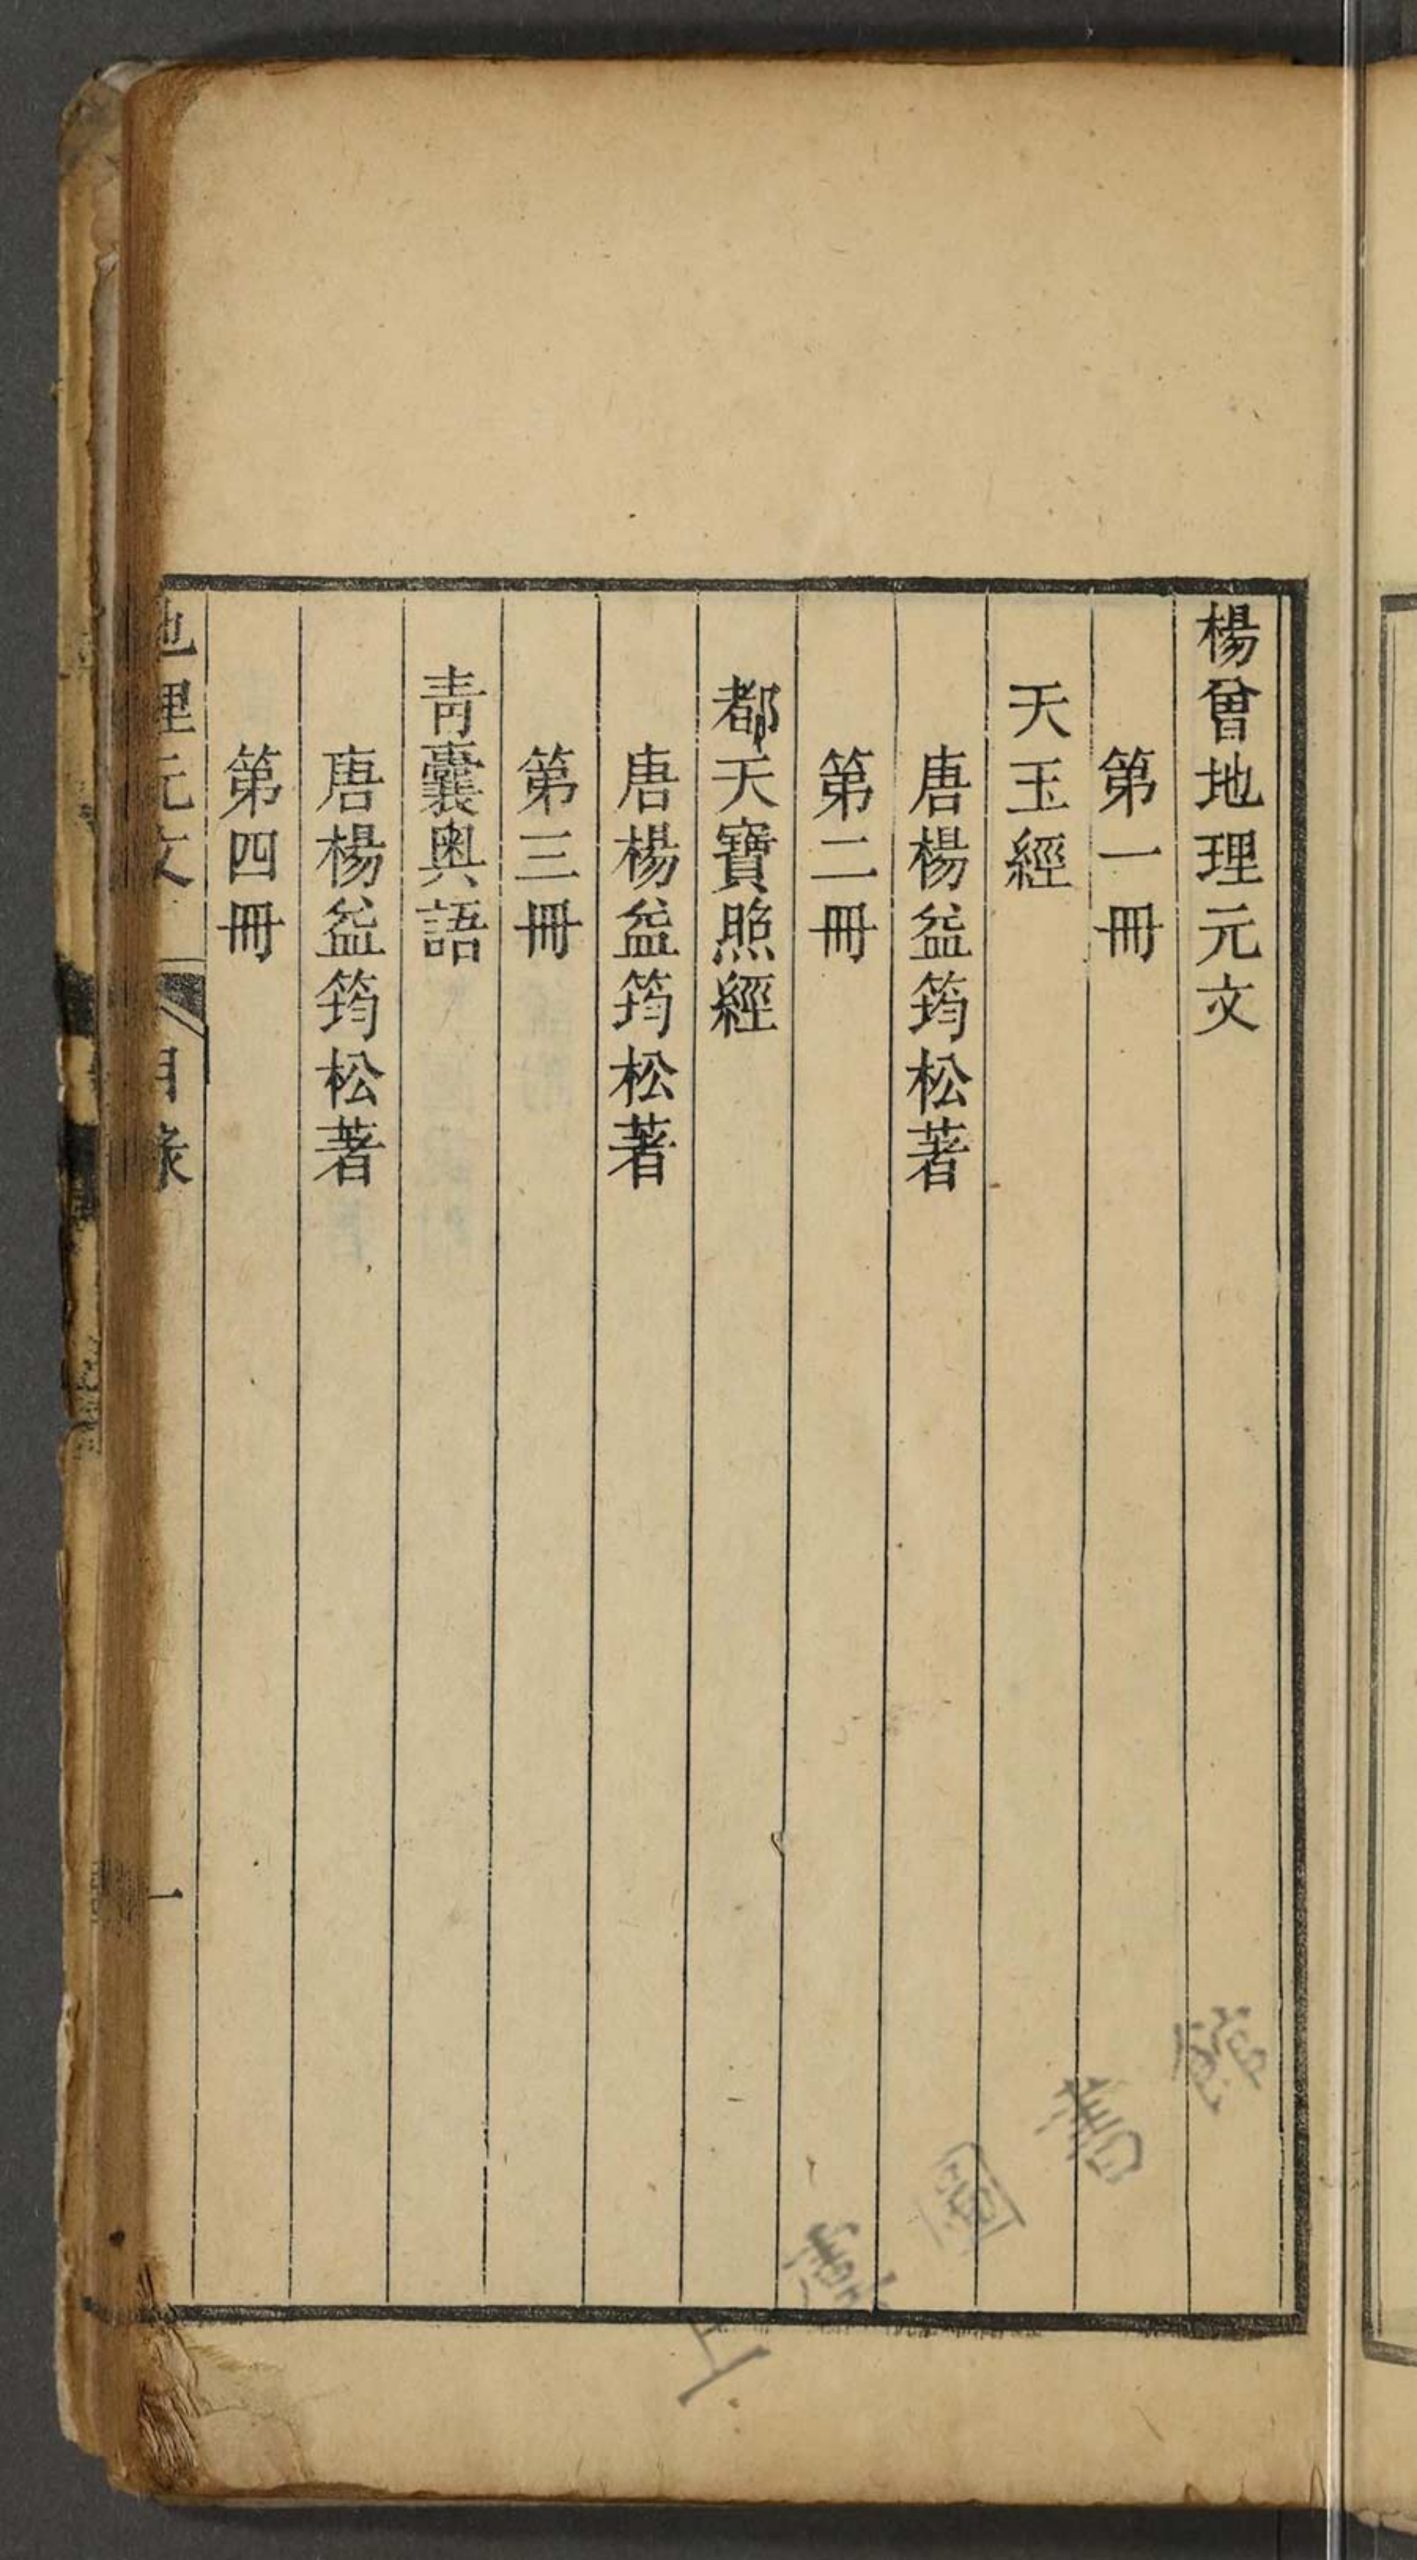 楊曾地理元文
第一冊
天玉經
唐楊益筠松著
第二冊
都天寶照經
唐楊益筠松著
第三冊
靑囊奥語
唐楊益筠松著
第四冊
地理元文 目錄 一
上虞圖書館